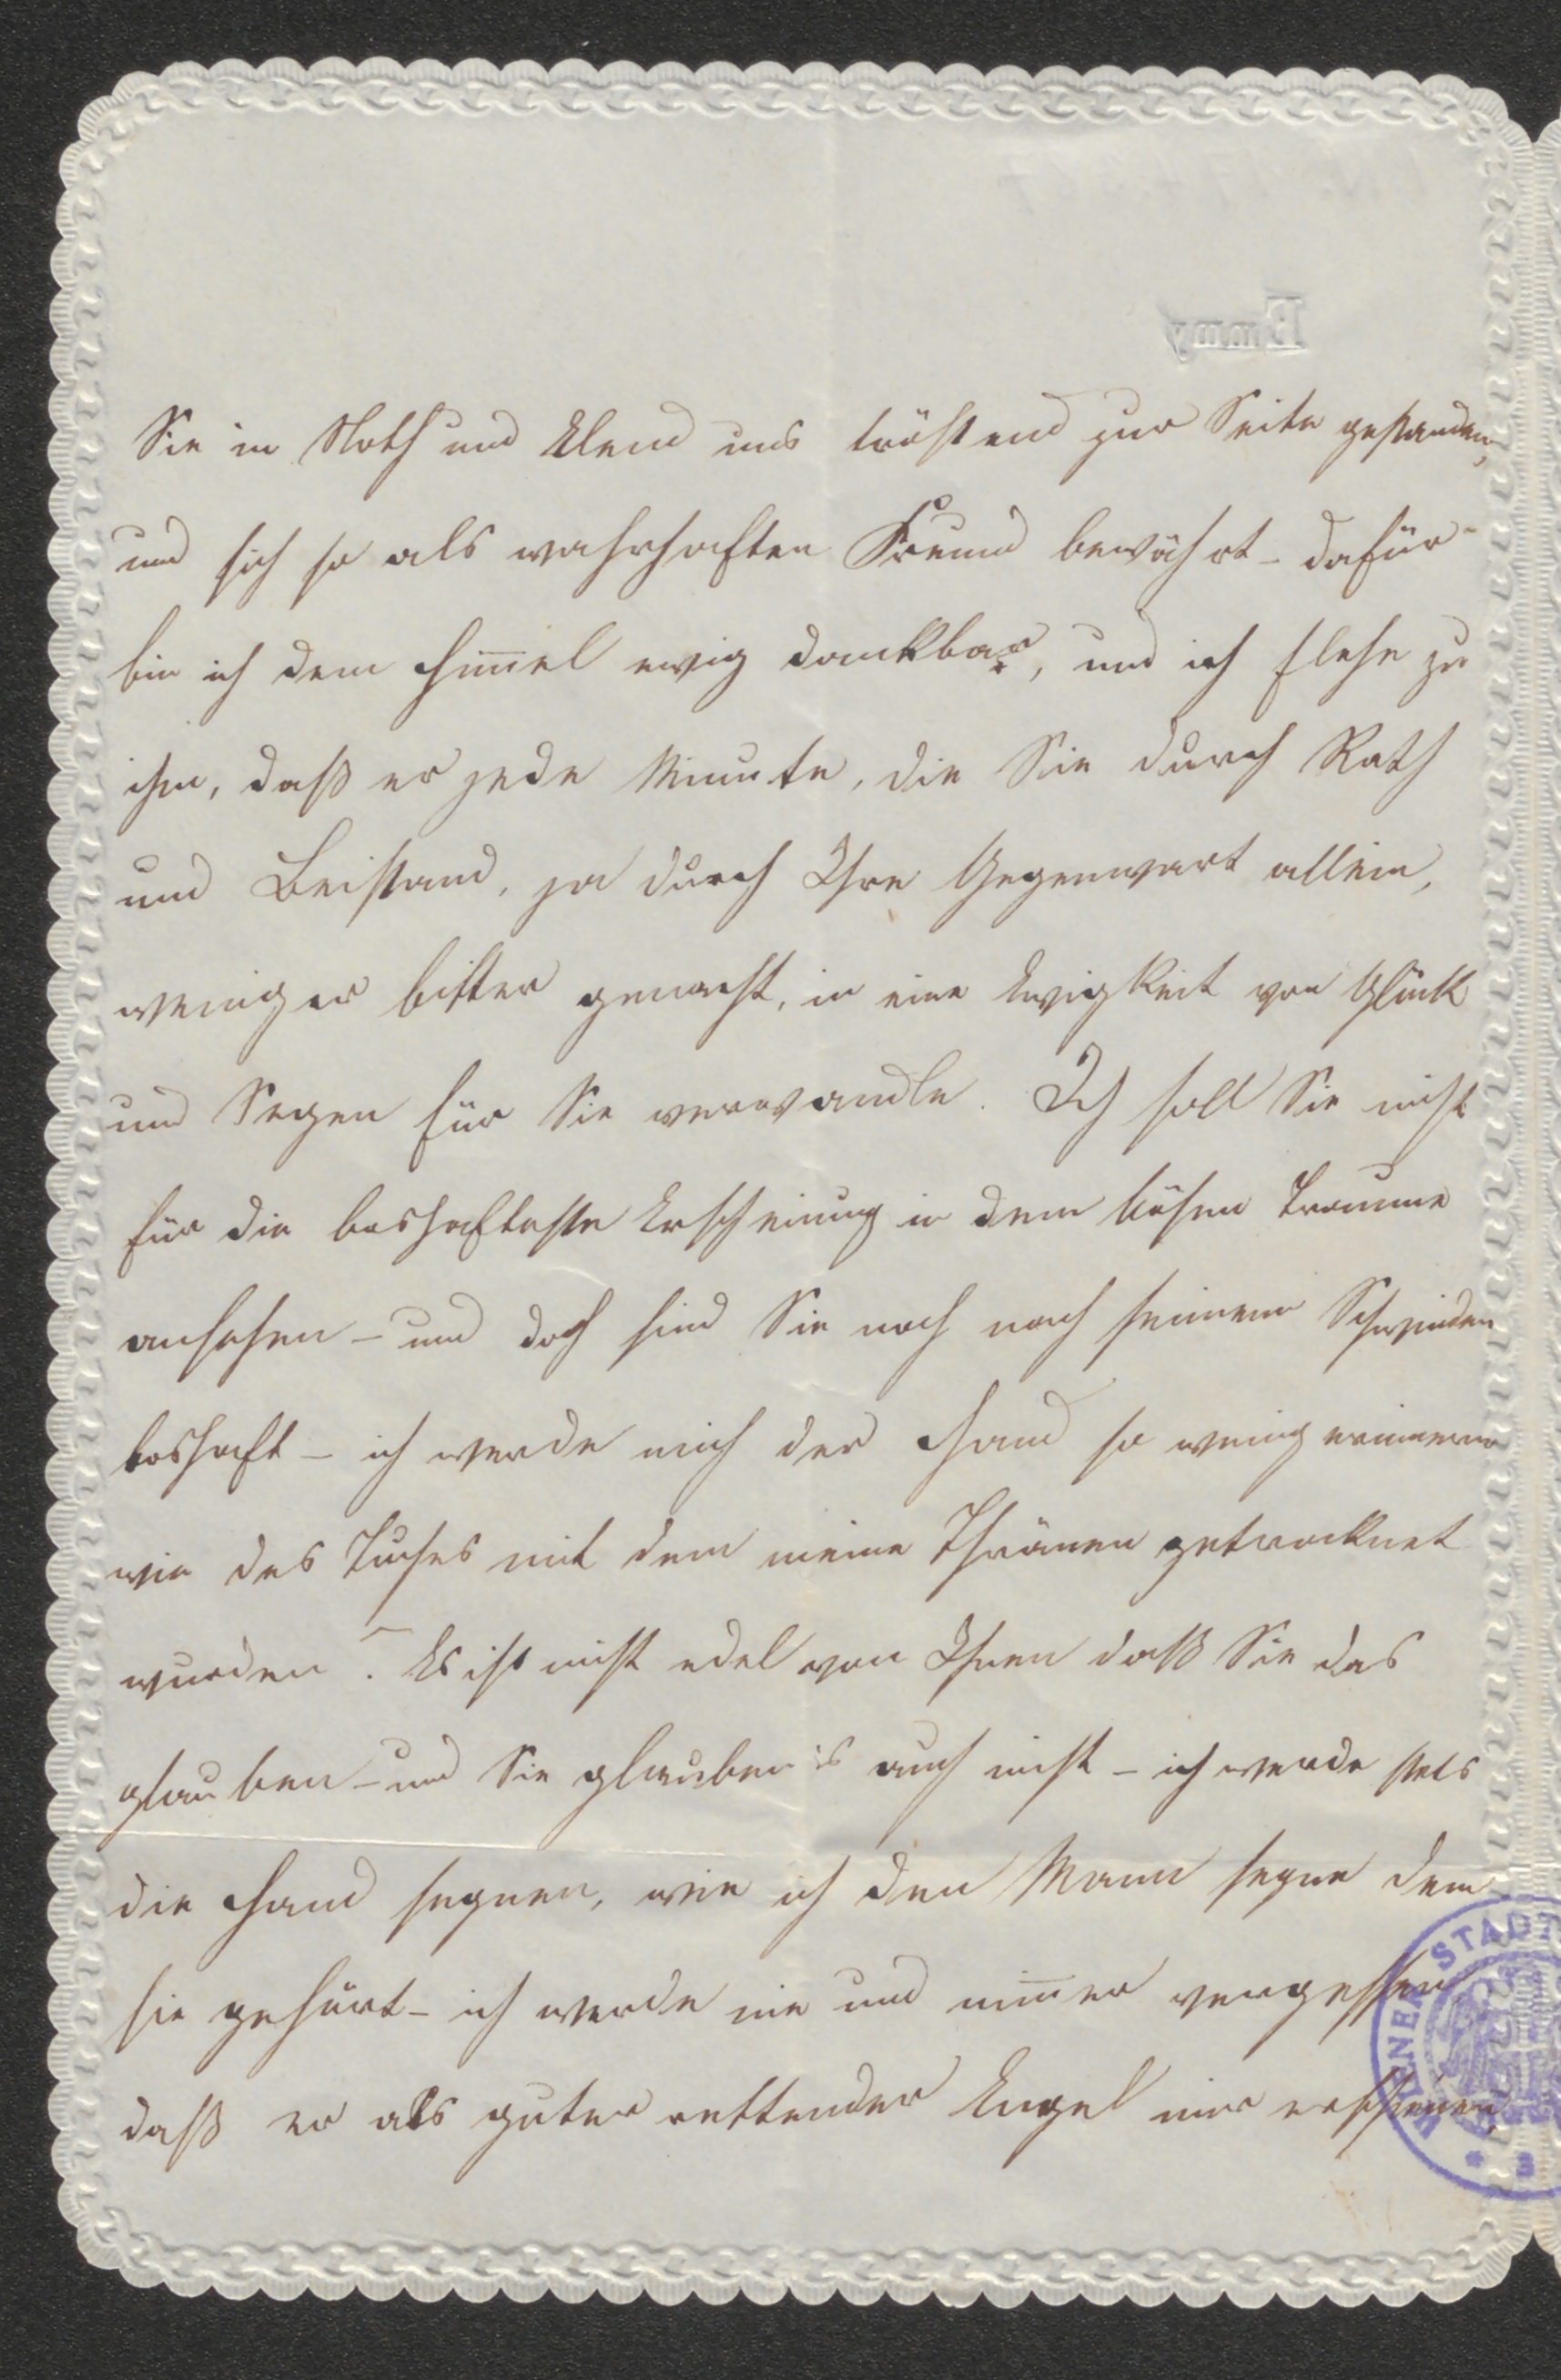 Emmy
Sie in Noth und Elend uns tröstend zur Seite gestanden,
und sich so als wahrhaften Freund bewährt – dafür
bin ich dem Him̅el ewig dankbar, und ich flehe zu
ihm, daß er jede Minute, die Sie durch Rath
und Beistand, ja durch Ihre Gegenwart allein,
weniger bitter gemacht, in eine Ewigkeit von Glück
und Segen für Sie verwandle. Ich soll Sie nicht
für die boshafteste Erscheinung in dem bösen Traume
ansehen – und doch sind Sie noch nach seinem Schwinden
boshaft – ich werde mich der Hand so wenig erinnern
wie des Tuches mit dem meine Thränen getrocknet
wurden? Es ist nicht edel von Ihnen daß Sie das
glauben – und Sie glauben's auch nicht – ich werde stets
die Hand segnen, wie ich den Mann segne dem
sie gehört – ich werde nie und nim̅er vergessen
daß er als guter rettender Engel mir erschienen,
WIENER STADT